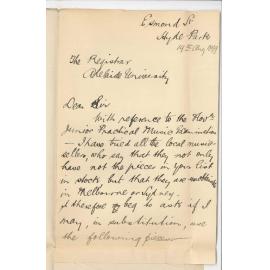 Esmond St
Hyde Park
19th Aug 1919
The Registrar
Adelaide University
Dear Sir
With reference to the Novr
Junior Practical Music Examination
– I have tried all the local music-
sellers, who say that they not only
have not the pieces in your list
in stock but that they are unobtainable
in Melbourne or Sydney.
I therefore beg to ask if I
may, in substitution, use
the following pieces